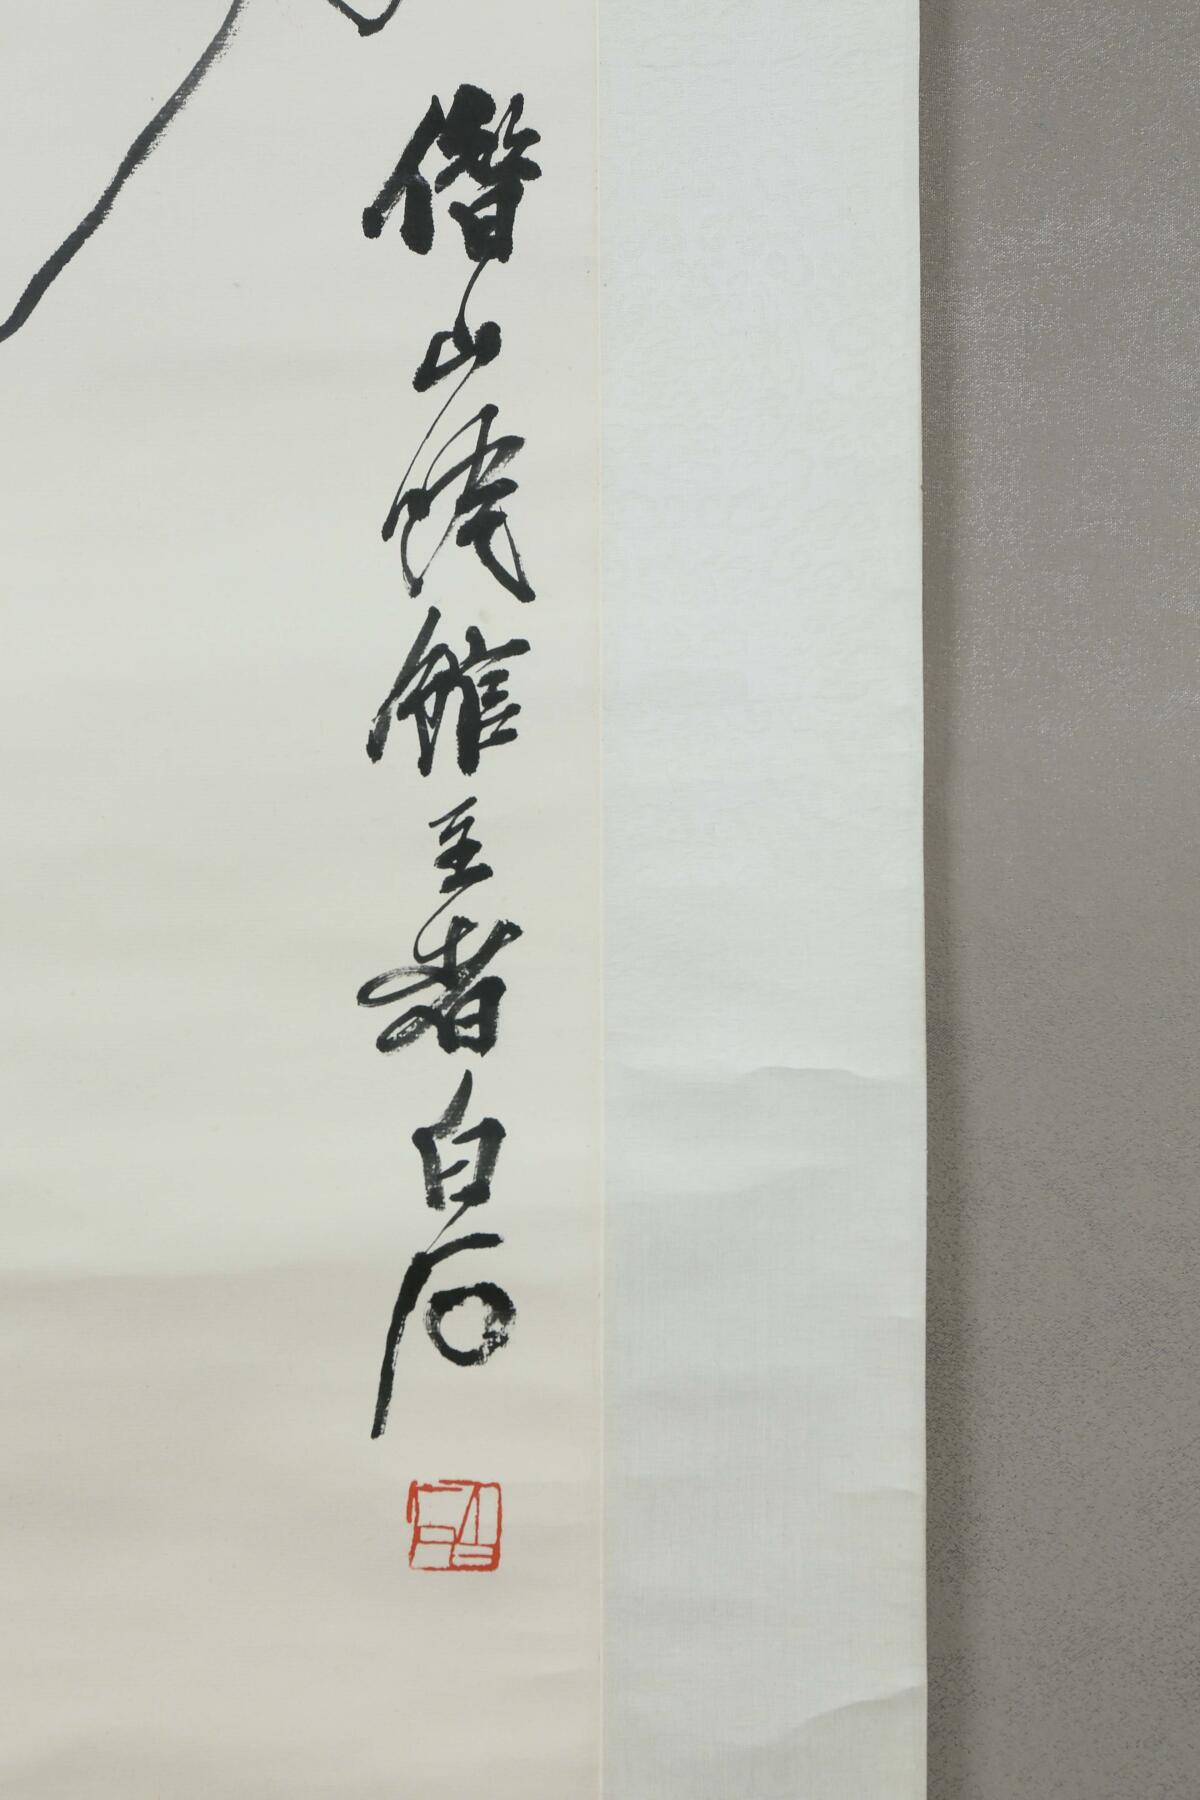 借山吟館主者白石
白石